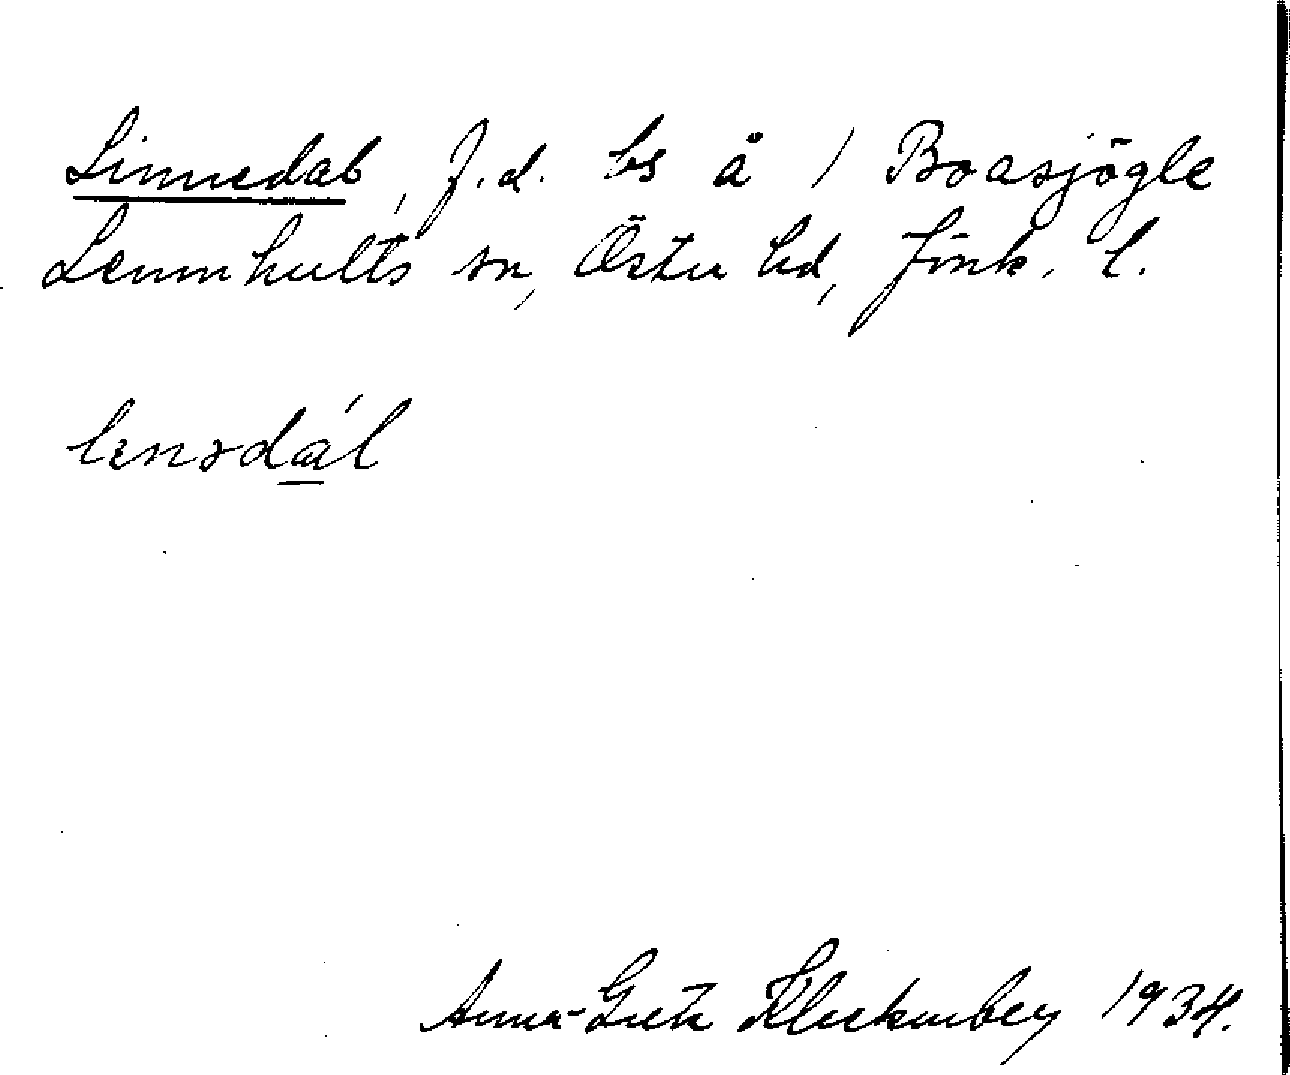 Linnedal, f.d. bs å / Boasjögle
Lemnhults sn, Östra hd, Jönk. l.
lenədál
Anna-Greta Kluckenberg 1934.